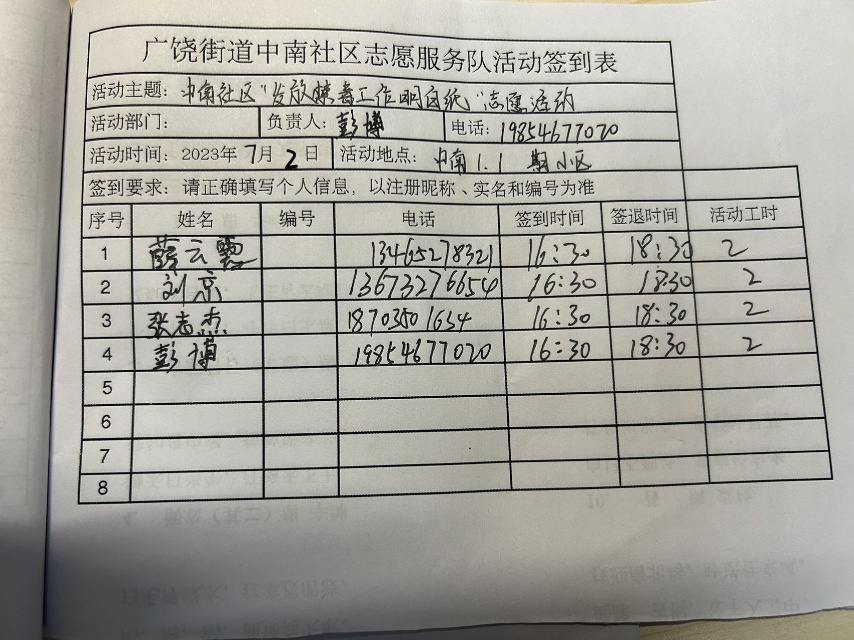 广饶街道中南社区志愿服务队活动签到表
活动主题: 中南社区"发放禁毒工作明白纸"志愿活动
活动部门: 负责人: 彭博 电话: 19854677020
活动时间: 2023年 7月 2日 活动地点: 中南1.1期小区
签到要求: 请正确填写个人信息，以注册昵称、实名和编号为准
序号 姓名 编号 电话 签到时间 签退时间 活动工时
1 薛云霞 13465278321 16:30 18:30 2
2 刘京 13673276654 16:30 18:30 2
3 张志杰 18703501634 16:30 18:30 2
4 彭博 19854677020 16:30 18:30 2
5
6
7
8